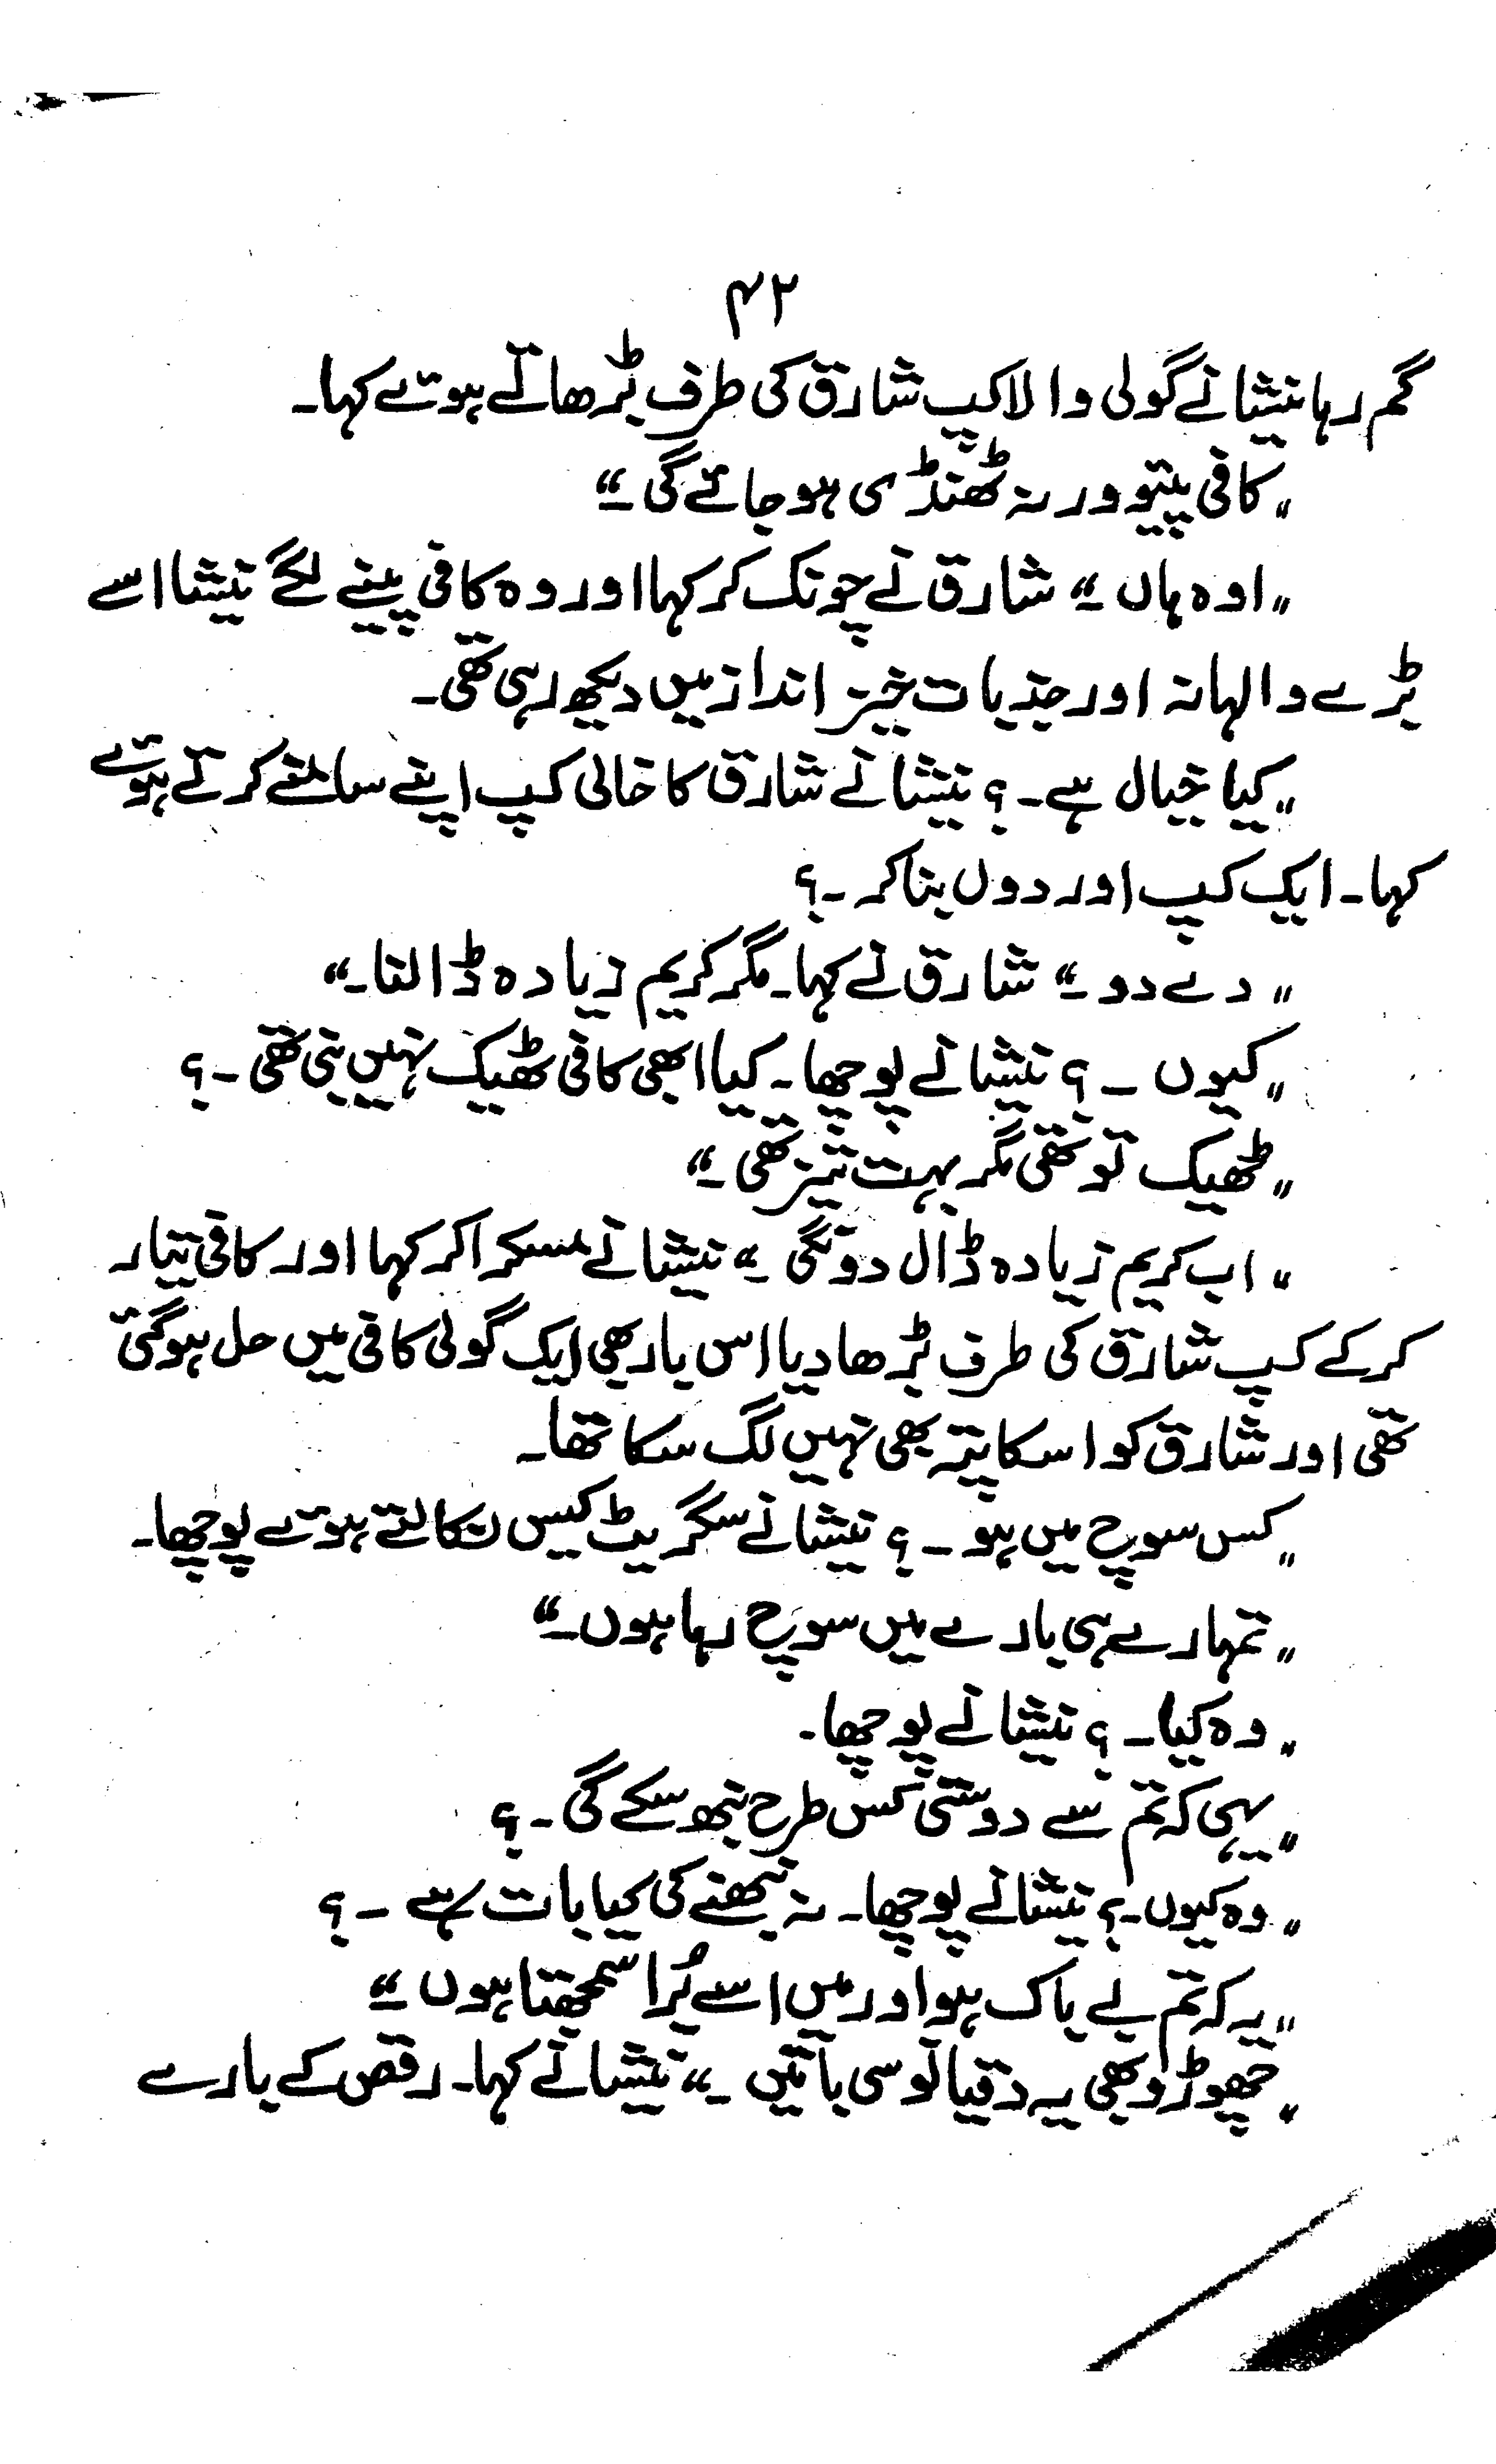 ۴۲
گم رہا نیشا نے گولی والا کپ شارق کی طرف بڑھاتے ہوئے کہا۔
"کافی پیئو ورنہ ٹھنڈی ہو جائے گی۔"
"اوہ ہاں۔" شارق نے چونک کر کہا اور وہ کافی پینے لگے نیشا اسے
بڑے والہانہ اور جذبات خیز انداز میں دیکھ رہی تھی۔
"کیا خیال ہے۔؟ نیشا نے شارق کا خالی کپ اپنے سامنے کرتے ہوئے
کہا۔ ایک کپ اور دوں بنا کر۔؟
"دے دو۔" شارق نے کہا۔ مگر کریم زیادہ ڈالنا۔"
"کیوں ۔؟ نیشا نے پوچھا۔ کیا ابھی کافی ٹھیک نہیں بنی تھی۔؟
"ٹھیک تو تھی مگر بہت تیز تھی۔"
"اب کریم زیادہ ڈال دونگی۔" نیشا نے مسکرا کر کہا اور کافی تیار
کر کے کپ شارق کی طرف بڑھا دیا اس بار بھی ایک گولی کافی میں حل ہو گئی
تھی اور شارق کو اسکا پتہ بھی نہیں لگ سکا تھا۔
"کس سوچ میں ہو ۔؟ نیشا نے سگریٹ کیس نکالتے ہوئے پوچھا۔
"تمہارے ہی بارے میں سوچ رہا ہوں۔"
"وہ کیا۔؟ نیشا نے پوچھا۔
"یہی کہ تم سے دوستی کس طرح نبھ سکے گی۔؟
"وہ کیوں۔؟ نیشا نے پوچھا۔ نہ نبھنے کی کیا بات ہے ۔؟
"یہ کہ تم بے باک ہو اور میں اسے بُرا سمجھتا ہوں۔"
"چھوڑو بھی یہ دقیانوسی باتیں۔" نیشا نے کہا۔ رقص کے بارے